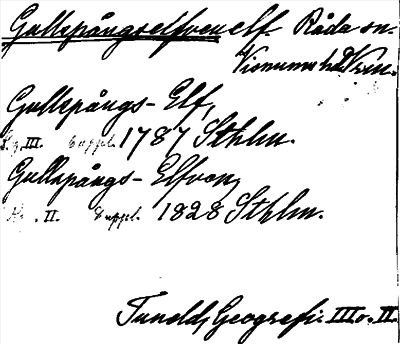 Gullspångselfven elf. Råda sn.
Visnums hd Vrm.
Gullspångs-Elf,
III. Suppl. 1787 Sthlm.
Gullspångs-Elfven,
II. Suppl. 1828 Sthlm.
Tuneld, Geografi. III o. II.